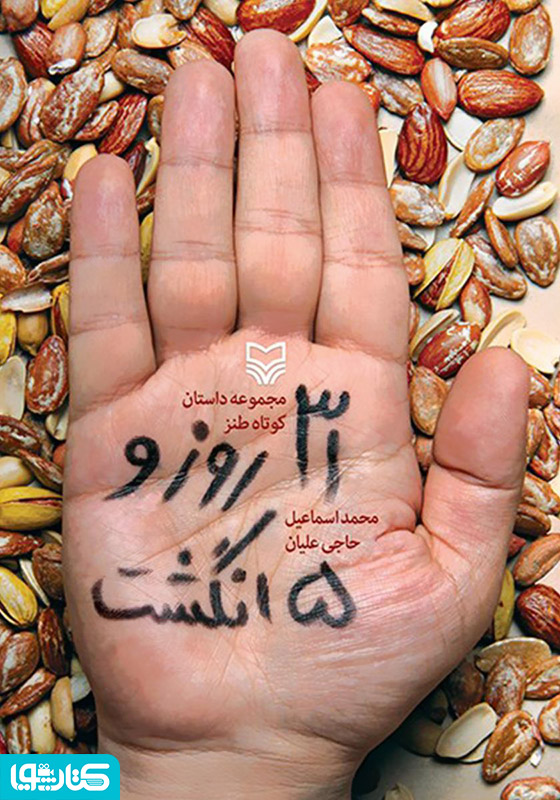 مجموعه داستان
کوتاه طنز
۳۱ روز و
محمد اسماعیل
حاجی علیان
۵ انگشت
کتابشیوا